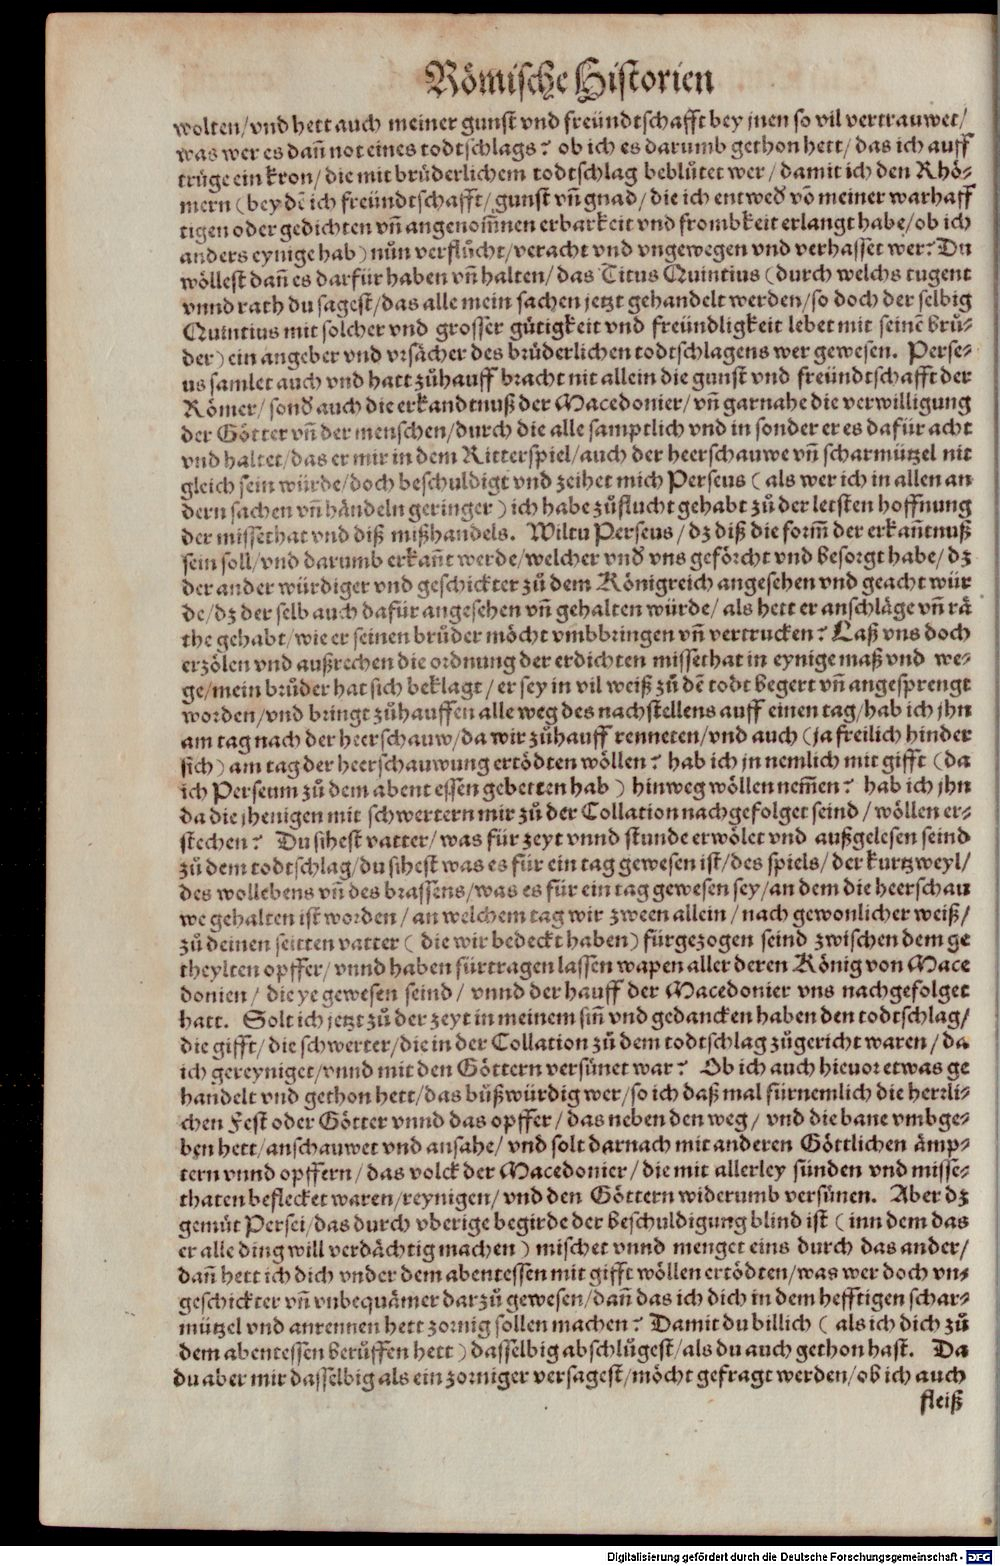 Römische Historien
wolten/vnd hett auch meiner gunst vnd freündtschafft bey jnen so vil vertrauwet/
was wer es dañ not eines todtschlags? ob ich es darumb gethon hett/das ich auff
trüge ein kron/die mit brůderlichem todtschlag beblůtet wer/damit ich den Rhö-
mern (bey dē ich freündtschafft/gunst vñ gnad/die ich entwed̕ vō meiner warhaff
tigen oder gedichten vñ angenom̃nen erbarkeit vnd frombkeit erlangt habe/ob ich
anders eynige hab) nůn verflůcht/veracht vnd vngewegen vnd verhasset wer? Du
wöllest dañ es darfür haben vñ halten/das Titus Quintius (durch welchs tugent
vnnd rath du sagest/das alle mein sachen jetzt gehandelt werden/so doch der selbig
Quintius mit solcher vnd grosser gütigkeit vnd freündligkeit lebet mit seinē brů-
der) ein angeber vnd vrsächer des brůderlichen todtschlagens wer gewesen. Perse-
us samlet auch vnd hatt zůhauff bracht nit allein die gunst vnd freündtschafft der
Römer/sond̕ auch die erkandtnuß der Macedonier/vñ garnahe die verwilligung
der Götter vñ der menschen/durch die alle samptlich vnd in sonder er es dafür acht
vnd haltet/das er mir in dem Ritterspiel/auch der heerschauwe vñ scharmützel nit
gleich sein würde/doch beschuldigt vnd zeihet mich Perseus (als wer ich in allen an
dern sachen vñ händeln geringer) ich habe zůflucht gehabt zů der letsten hoffnung
der missethat vnd diß mißhandels. Wiltu Perseus/dz diß die form̃ der erkañtnuß
sein soll/vnd darumb erkañt werde/welcher vnd̕ vns geförcht vnd besorgt habe/dz
der ander würdiger vnd geschickter zů dem Königreich angesehen vnd geacht wür
de/dz der selb auch dafür angesehen vñ gehalten würde/als hett er anschläge vñ rä
the gehabt/wie er seinen brůder möcht vmbbringen vñ vertrucken? Laß vns doch
erzölen vnd außrechen die ordnung der erdichten missethat in eynige maß vnd we-
ge/mein brůder hat sich beklagt/er sey in vil weiß zů dē todt begert vñ angesprengt
worden/vnd bringt zůhauffen alle weg des nachstellens auff einen tag/hab ich jhn
am tag nach der heerschauw/da wir zůhauff renneten/vnd auch (ja freilich hinder
sich) am tag der heerschauwung ertödten wöllen? hab ich jn nemlich mit gifft (da
ich Perseum zů dem abent essen gebetten hab) hinweg wöllen nem̃en? hab ich jhn
da die jhenigen mit schwertern mir zů der Collation nachgefolget seind/wöllen er-
stechen? Du sihest vatter/was für zeyt vnnd stunde erwölet vnd außgelesen seind
zů dem todtschlag/du sihest was es für ein tag gewesen ist/des spiels/der kurtzweyl/
des wollebens vñ des brassens/was es für ein tag gewesen sey/an dem die heerschau
we gehalten ist worden/an welchem tag wir zween allein/nach gewonlicher weiß/
zů deinen seitten vatter (die wir bedeckt haben) fürgezogen seind zwischen dem ge
theylten opffer/vnnd haben fürtragen lassen wapen aller deren König von Mace
donien/die ye gewesen seind/vnnd der hauff der Macedonier vns nachgefolget
hatt. Solt ich jetzt zů der zeyt in meinem siñ vnd gedancken haben den todtschlag/
die gifft/die schwerter/die in der Collation zů dem todtschlag zůgericht waren/da
ich gereyniget/vnnd mit den Göttern versünet war? Ob ich auch hieuor etwas ge
handelt vnd gethon hett/das bůßwürdig wer/so ich daß mal fürnemlich die herrli-
chen Fest oder Götter vnnd das opffer/das neben den weg/vnd die bane vmbge-
ben hett/anschauwet vnd ansahe/vnd solt darnach mit anderen Göttlichen ämp-
tern vnnd opffern/das volck der Macedonier/die mit allerley sünden vnd misse-
thaten beflecket waren/reynigen/vnd den Göttern widerumb versünen. Aber dz
gemüt Persei/das durch vberige begirde der beschuldigung blind ist (inn dem das
er alle ding will verdächtig machen) mischet vnnd menget eins durch das ander/
dañ hett ich dich vnder dem abentessen mit gifft wöllen ertödten/was wer doch vn-
geschickter vñ vnbequämer darzů gewesen/dañ das ich dich in dem hefftigen schar-
mützel vnd anrennen hett zornig sollen machen? Damit du billich (als ich dich zů
dem abentessen berůffen hett) dasselbig abschlůgest/als du auch gethon hast. Da
du aber mir dasselbig als ein zorniger versagest/möcht gefragt werden/ob ich auch
fleiß
Digitalisierung gefördert durch die Deutsche Forschungsgemeinschaft - DFG